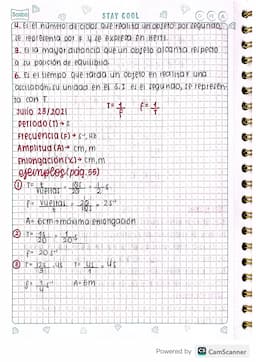 STAY COOL
4. Es el número de ciclos que realiza un objeto por segundo,
se representa por f y se expresa en Hertz.
5. Es la mayor distancia que un objeto alcanza respecto
a su posición de equilibrio.
6. Es el tiempo que tarda un objeto en realizar una
oscilación, su unidad en el S.I es el segundo, se represen-
ta con T.
T= 1/f f= 1/T
Julio 28/2021
Periodo (T) → s
Frecuencia (F) → s⁻¹, Hz
Amplitud (A) → cm, m
Elongación (X) → cm, m
Ejemplos (pág. 55)
① T= t/vueltas
f= vueltas/t
A= 6cm → máxima elongación
②
f= 20s⁻¹
③
A= 6m
Powered by CS CamScanner